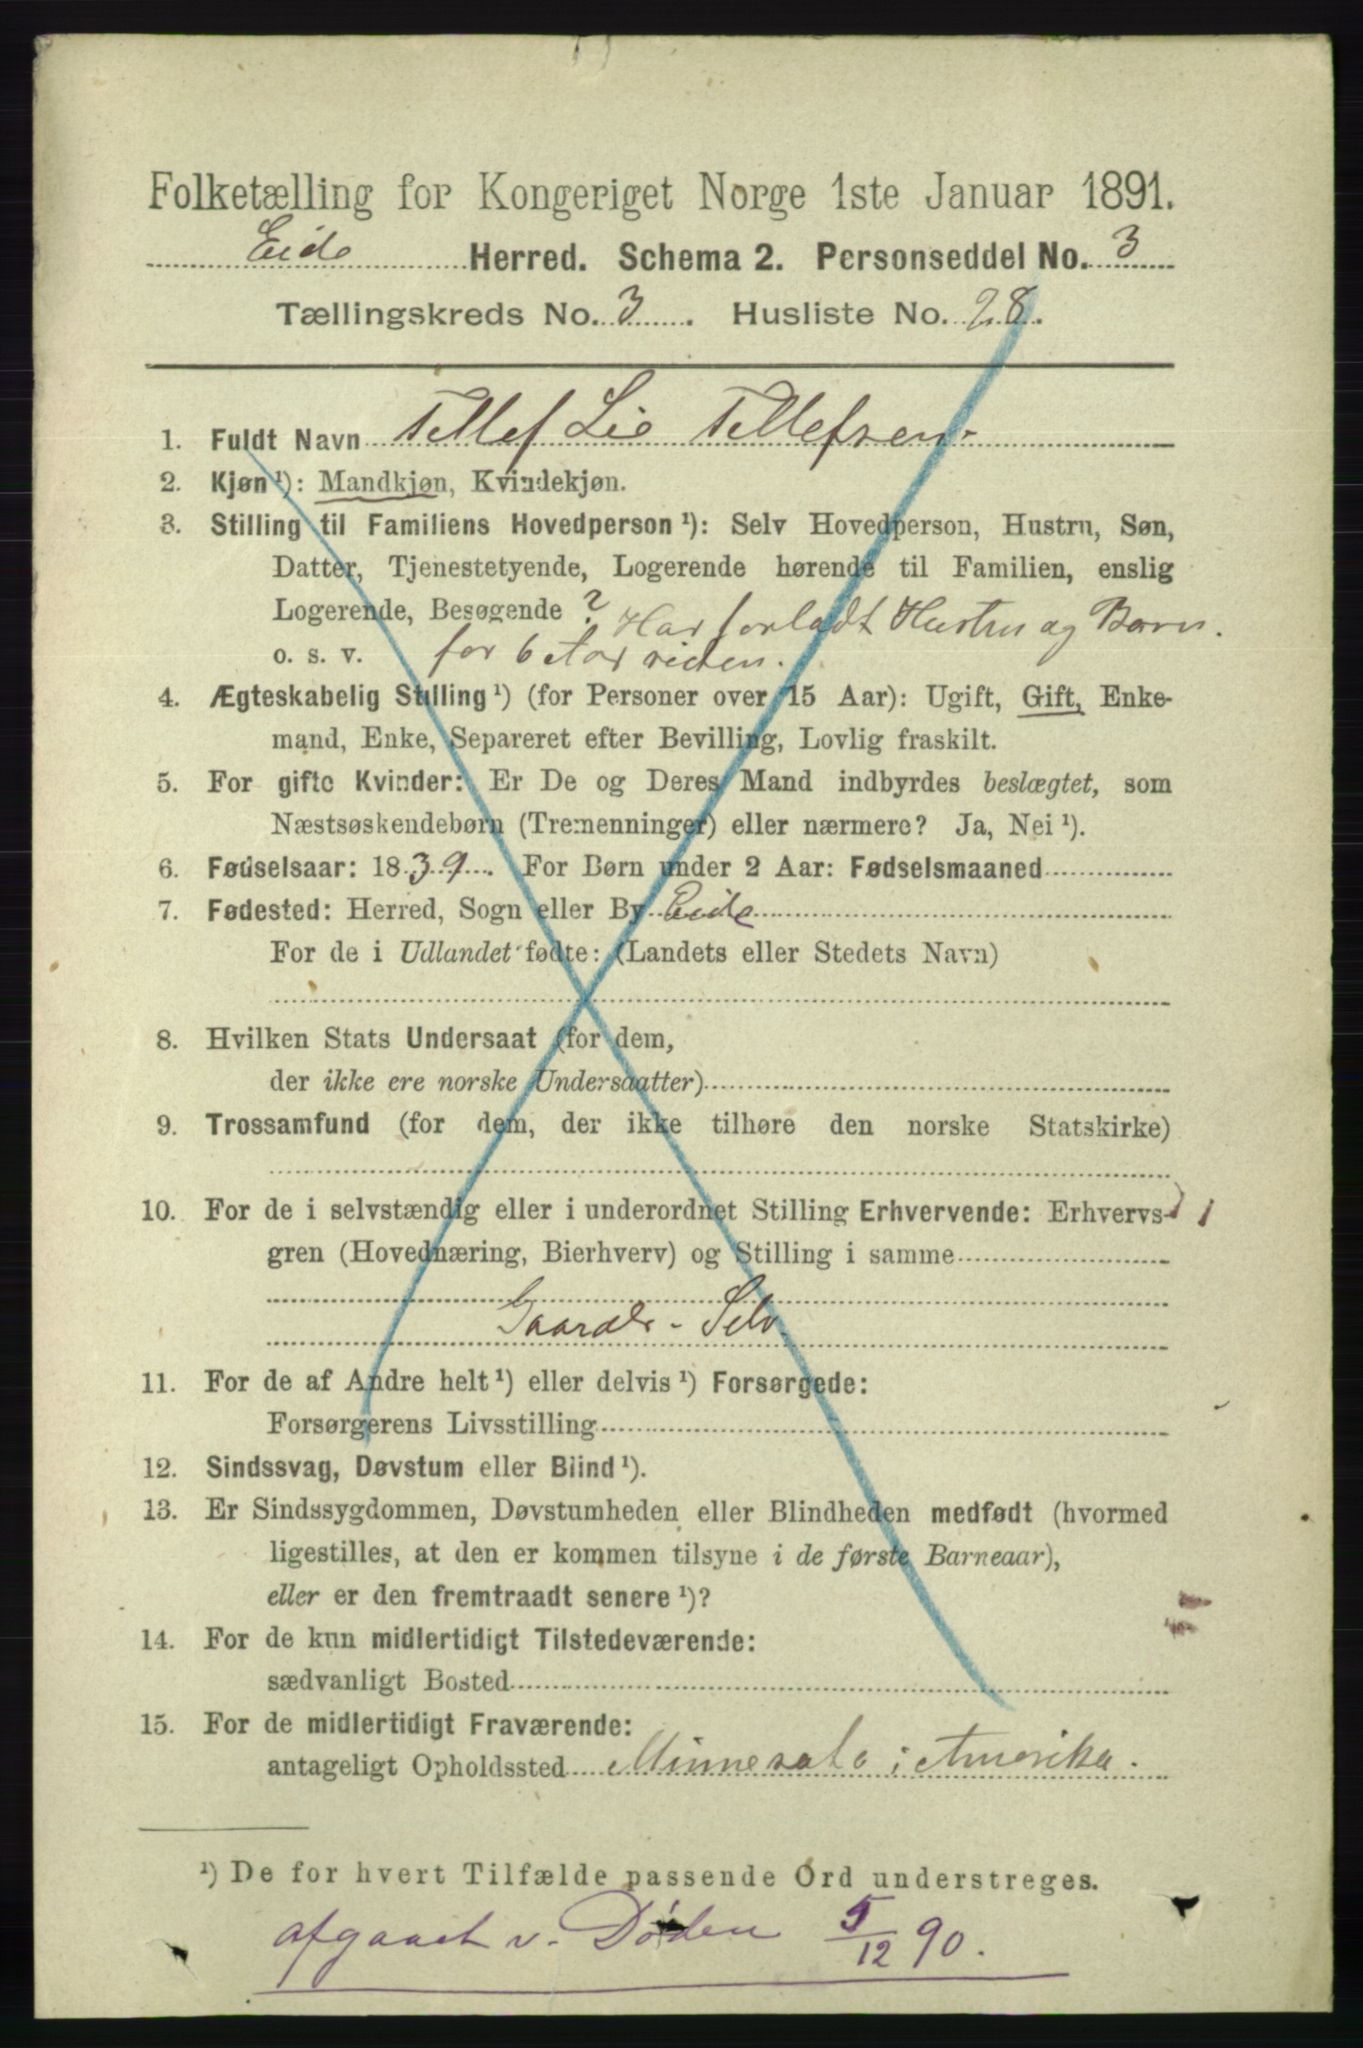 Folketælling for Kongeriget Norge 1ste Januar 1891.
Eide Herred. Schema 2. Personseddel No. 3
Tællingskreds No. 3. Husliste No. 28.
1. Fuldt Navn Tellef Lie Tellefsen
2. Kjøn ¹): Mandkjøn, Kvindekjøn.
3. Stilling til Familiens Hovedperson ¹): Selv Hovedperson, Hustru, Søn,
Datter, Tjenestetyende, Logerende hørende til Familien, enslig
Logerende, Besøgende ? Har forladt Hustru og Børn.
o. s. v. for 6 Aar siden.
4. Ægteskabelig Stilling ¹) (for Personer over 15 Aar): Ugift, Gift, Enke-
mand, Enke, Separeret efter Bevilling, Lovlig fraskilt.
5. For gifte Kvinder: Er De og Deres Mand indbyrdes beslægtet, som
Næstsøskendebørn (Tremenninger) eller nærmere? Ja, Nei ¹).
6. Fødselsaar: 1839. For Børn under 2 Aar: Fødselsmaaned
7. Fødested: Herred, Sogn eller By Eide
For de i Udlandet fødte: (Landets eller Stedets Navn)
8. Hvilken Stats Undersaat (for dem,
der ikke ere norske Undersaatter)
9. Trossamfund (for dem, der ikke tilhøre den norske Statskirke)
10. For de i selvstændig eller i underordnet Stilling Erhvervende: Erhvervs-
gren (Hovednæring, Bierhverv) og Stilling i samme
Gaardb. - Selv.
11. For de af Andre helt ¹) eller delvis ¹) Forsørgede:
Forsørgerens Livsstilling
12. Sindssvag, Døvstum eller Blind ¹).
13. Er Sindssygdommen, Døvstumheden eller Blindheden medfødt (hvormed
ligestilles, at den er kommen tilsyne i de første Barneaar),
eller er den fremtraadt senere ¹)?
14. For de kun midlertidigt Tilstedeværende:
sædvanligt Bosted
15. For de midlertidigt Fraværende:
antageligt Opholdssted Minnesota i Amerika.
¹) De for hvert Tilfælde passende Ord understreges.
afgaaet v. Døden 5/12 90.